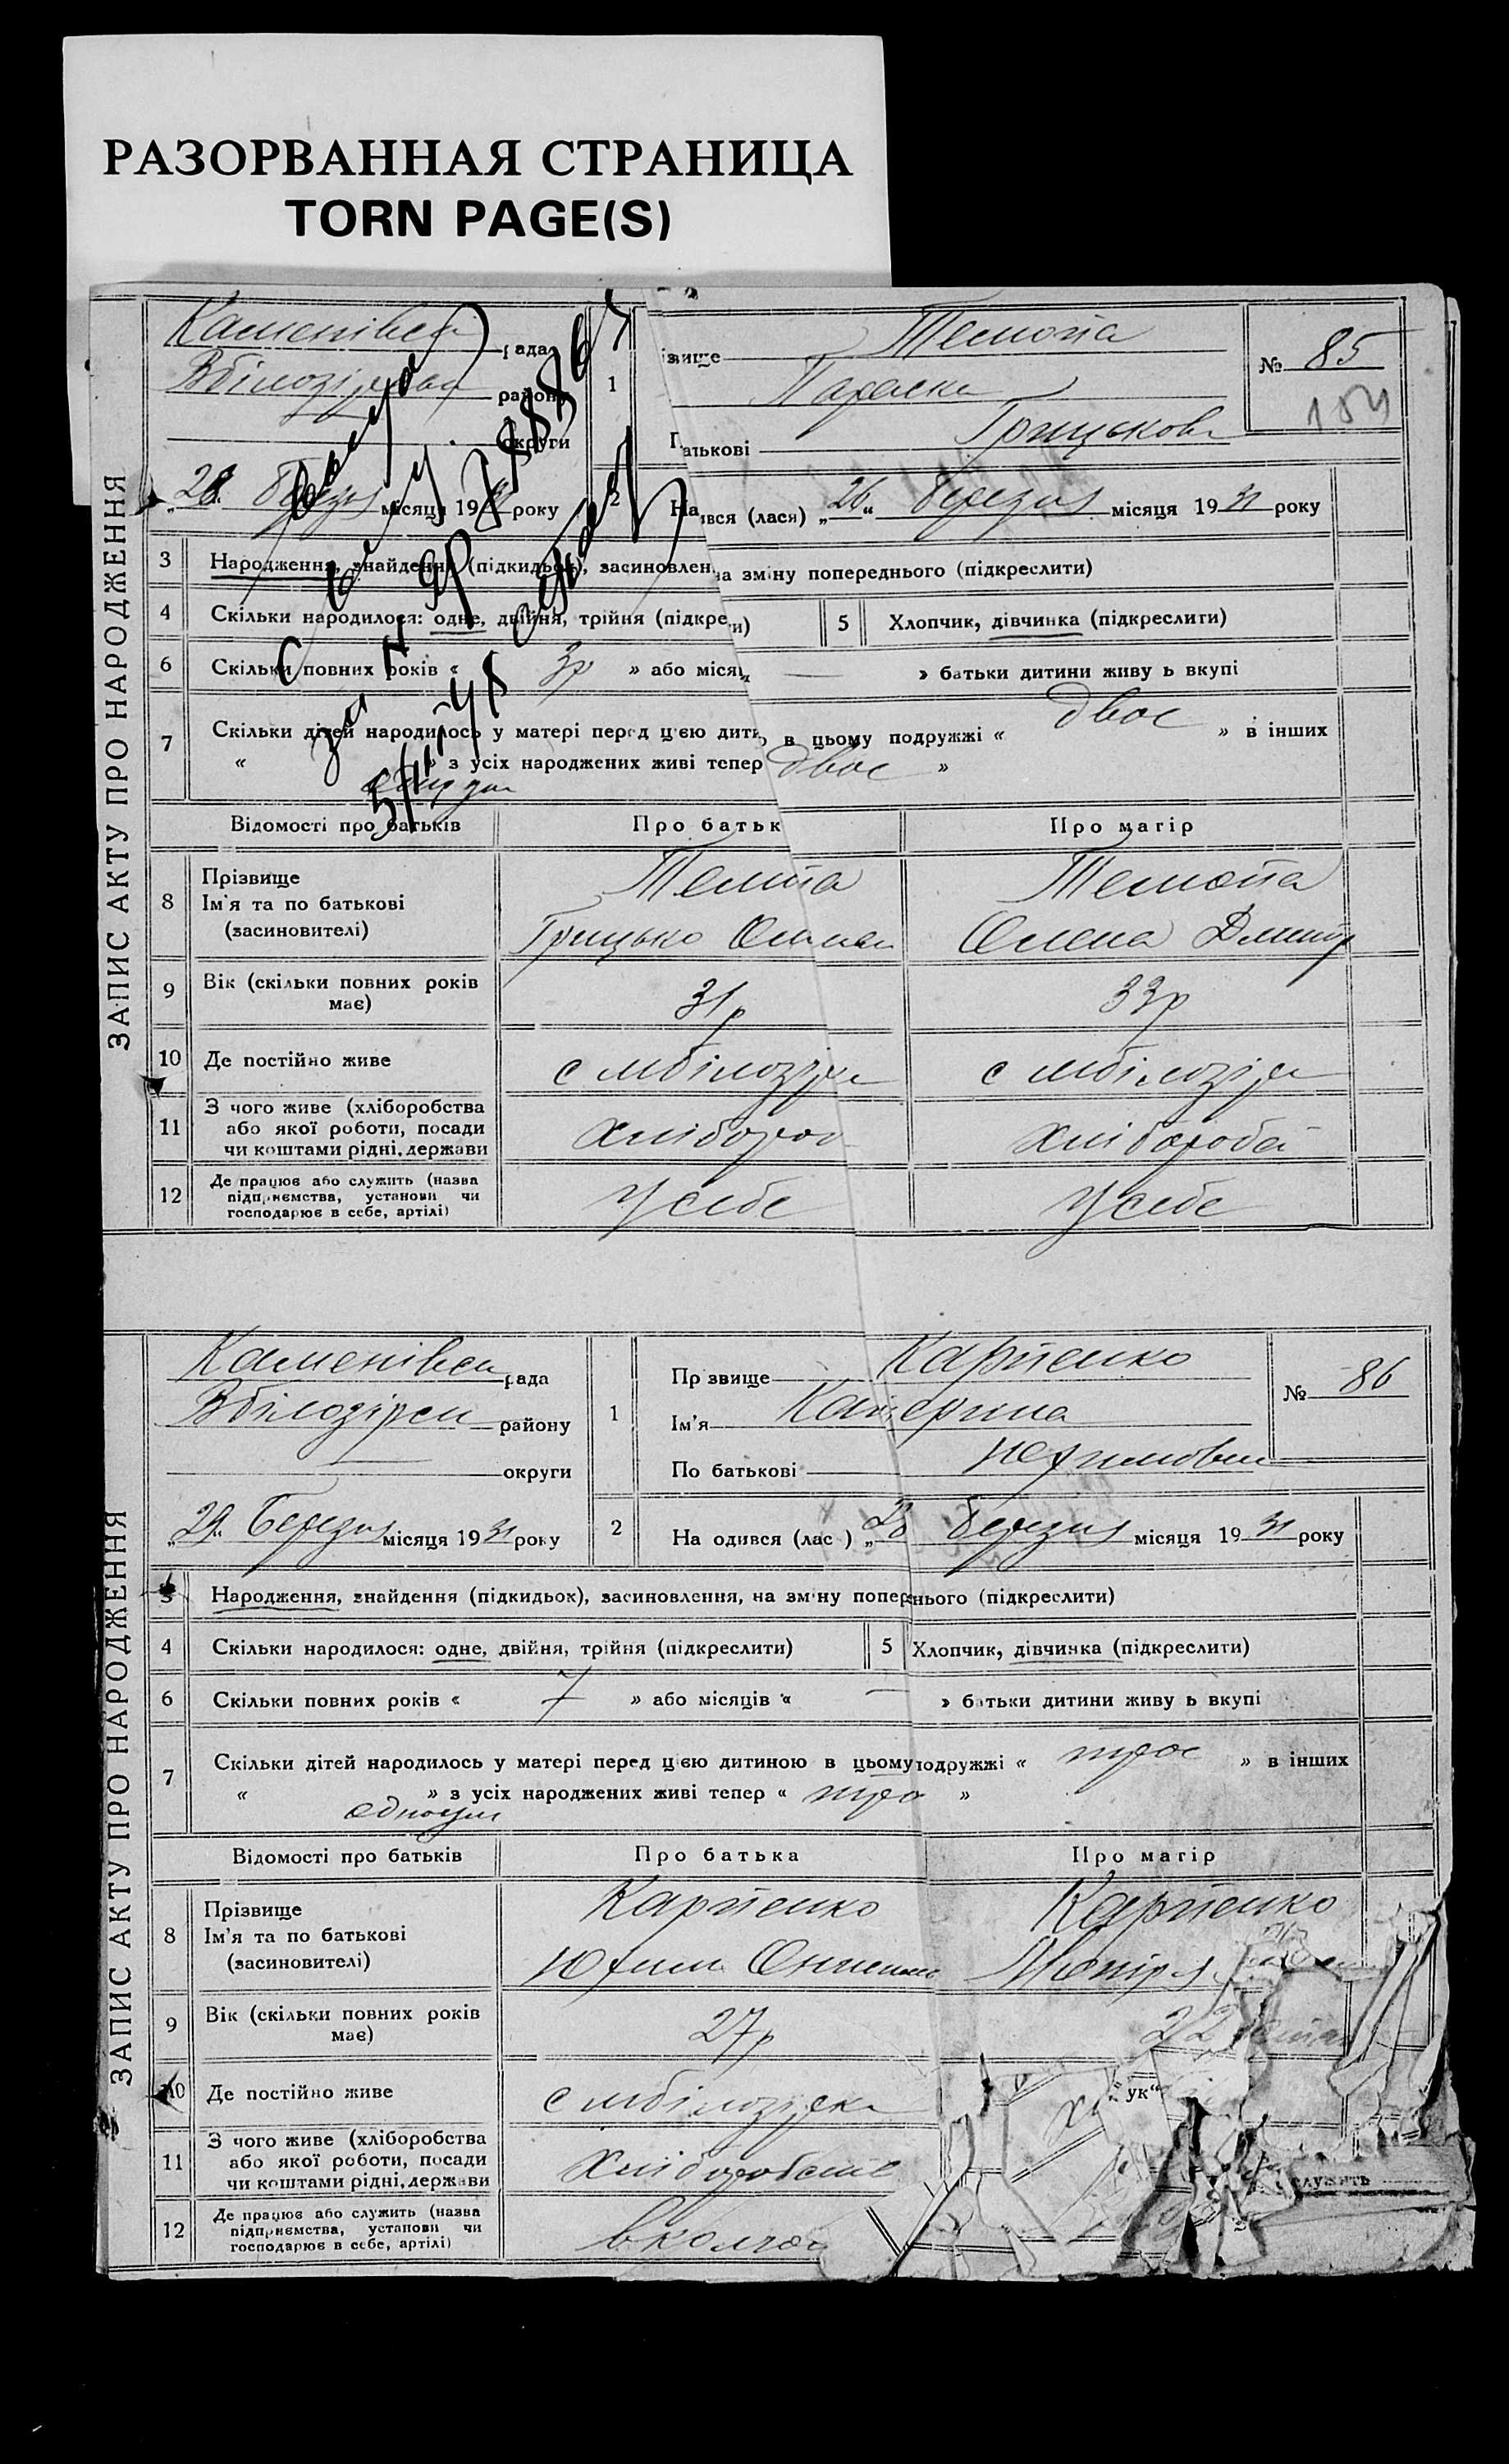 РАЗОРВАННАЯ СТРАНИЦА
TORN PAGE(S)
ЗАПИС АКТУ ПРО НАРОДЖЕННЯ
Каменівсь рада
району
округи
"28" березня місяця 1931 року
1
ізвище Темота
Параска
атькові Грицьков
№ 85
104
2 На ився (лася) „26“ березня місяця 1931 року
3 Народження, знайдення (підкидьок), засиновлен на зміну попереднього (підкреслити)
4 Скільки народилося: одне, двійня, трійня (підкре и)
5 Хлопчик, дівчинка (підкреслити)
6 Скільки повних років « 3р » або місяц — » батьки дитини живу ь вкупі
7 Скільки дітей народилось у матері перед цією дит в цьому подружжі « двоє » в інших
« » з усіх народжених живі тепер двоє »
Відомості про батьків Про батьк Про матір
8 Прізвище
Ім'я та по батькові
(засиновителі)
Темота
Грицько
Темота
Олена Дмитр
9 Вік (скільки повних років має) 31р 33р
10 Де постійно живе с мбілозірка с мбілозірк
11 З чого живе (хліборобства
або якої роботи, посади
чи коштами рідні, держави
хлібороб хлібороба
12 Де працює або служить (назва
підприємства, установи чи
господарює в себе, артілі)
У себе У себе
ЗАПИС АКТУ ПРО НАРОДЖЕННЯ
Каменівськ рада
Вбілозірск району
— округи
„29“ Березня місяця 1931 року
1
Пр звище Карпенко
Ім'я Катерина
По батькові Юхимовна
№ 86
2 На одився (лас ) „28 березня місяця 1931 року
3 Народження, знайдення (підкидьок), засиновлення, на зміну попер нього (підкреслити)
4 Скільки народилося: одне, двійня, трійня (підкреслити)
5 Хлопчик, дівчинка (підкреслити)
6 Скільки повних років « 7 » або місяців « — » батьки дитини живу ь вкупі
7 Скільки дітей народилось у матері перед цією дитиною в цьому подружжі « троє » в інших
« » з усіх народжених живі тепер « тро »
Відомості про батьків Про батька Про матір
8 Прізвище
Ім'я та по батькові
(засиновителі)
Карпенко
Юхим
Карпенко
9 Вік (скільки повних років має) 27р 22
10 Де постійно живе с мбілозірка
ук“
11 З чого живе (хліборобства
або якої роботи, посади
чи коштами рідні, держави
хліборобство
служить
12 Де працює або служить (назва
підприємства, установи чи
господарює в себе, артілі)